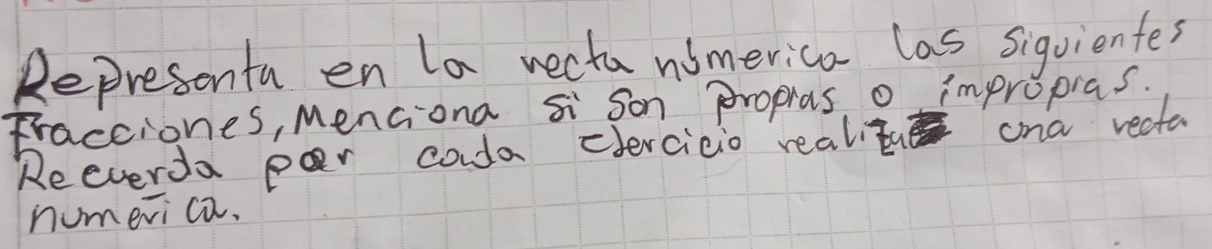 Representa en la recta númerica las siguientes
Fracciones, Menciona si son propias o impropias.
Recuerda por cada ejercicio realizar una recta
numérica.